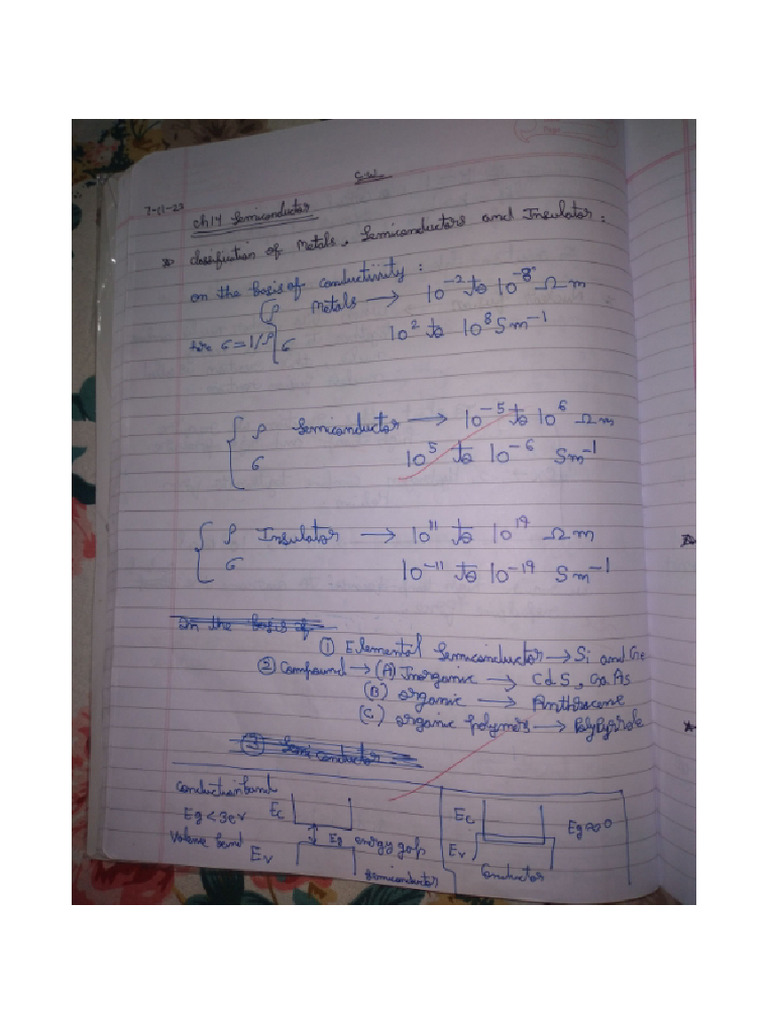 C.W
7-11-23
Ch 14 Semiconductor
Classification of Metals, Semiconductors and Insulator:
on the basis of conductivity:
ρ Metals → 10⁻² to 10⁻⁸ Ω m
σ = 1/ρ σ 10² to 10⁸ Sm⁻¹
ρ Semiconductor → 10⁻⁵ to 10⁶ Ω m
σ 10⁵ to 10⁻⁶ Sm⁻¹
ρ Insulator → 10¹¹ to 10¹⁹ Ω m
σ 10⁻¹¹ to 10⁻¹⁹ Sm⁻¹
In the basis of
① Elemental Semiconductor → Si and Ge
② Compound → (A) Inorganic → CdS, GaAs
(B) organic → Anthracene
(C) organic polymers → Polypyrrole
③ Semiconductor
Conduction band
Eg < 3ev Ec
Eg energy gap
Valance band Ev
Semiconductor
Ec Eg ≈ 0
Ev
Conductor